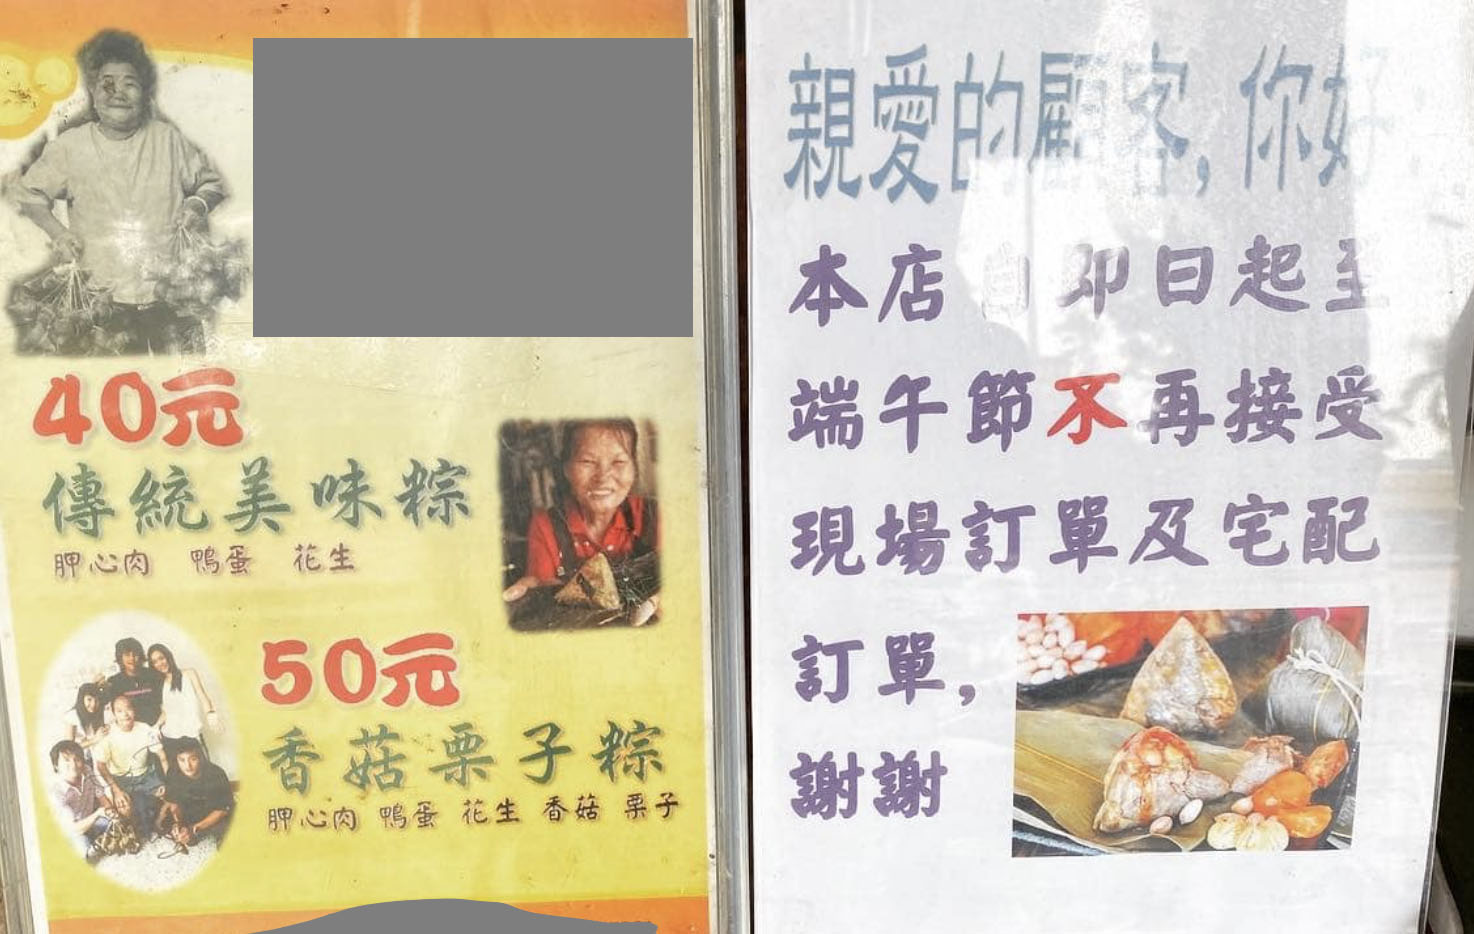 40元
傳統美味粽
胛心肉 鴨蛋 花生
50元
香菇栗子粽
胛心肉 鴨蛋 花生 香菇 栗子
親愛的顧客,你好
本店自即日起至
端午節不再接受
現場訂單及宅配
訂單,
謝謝